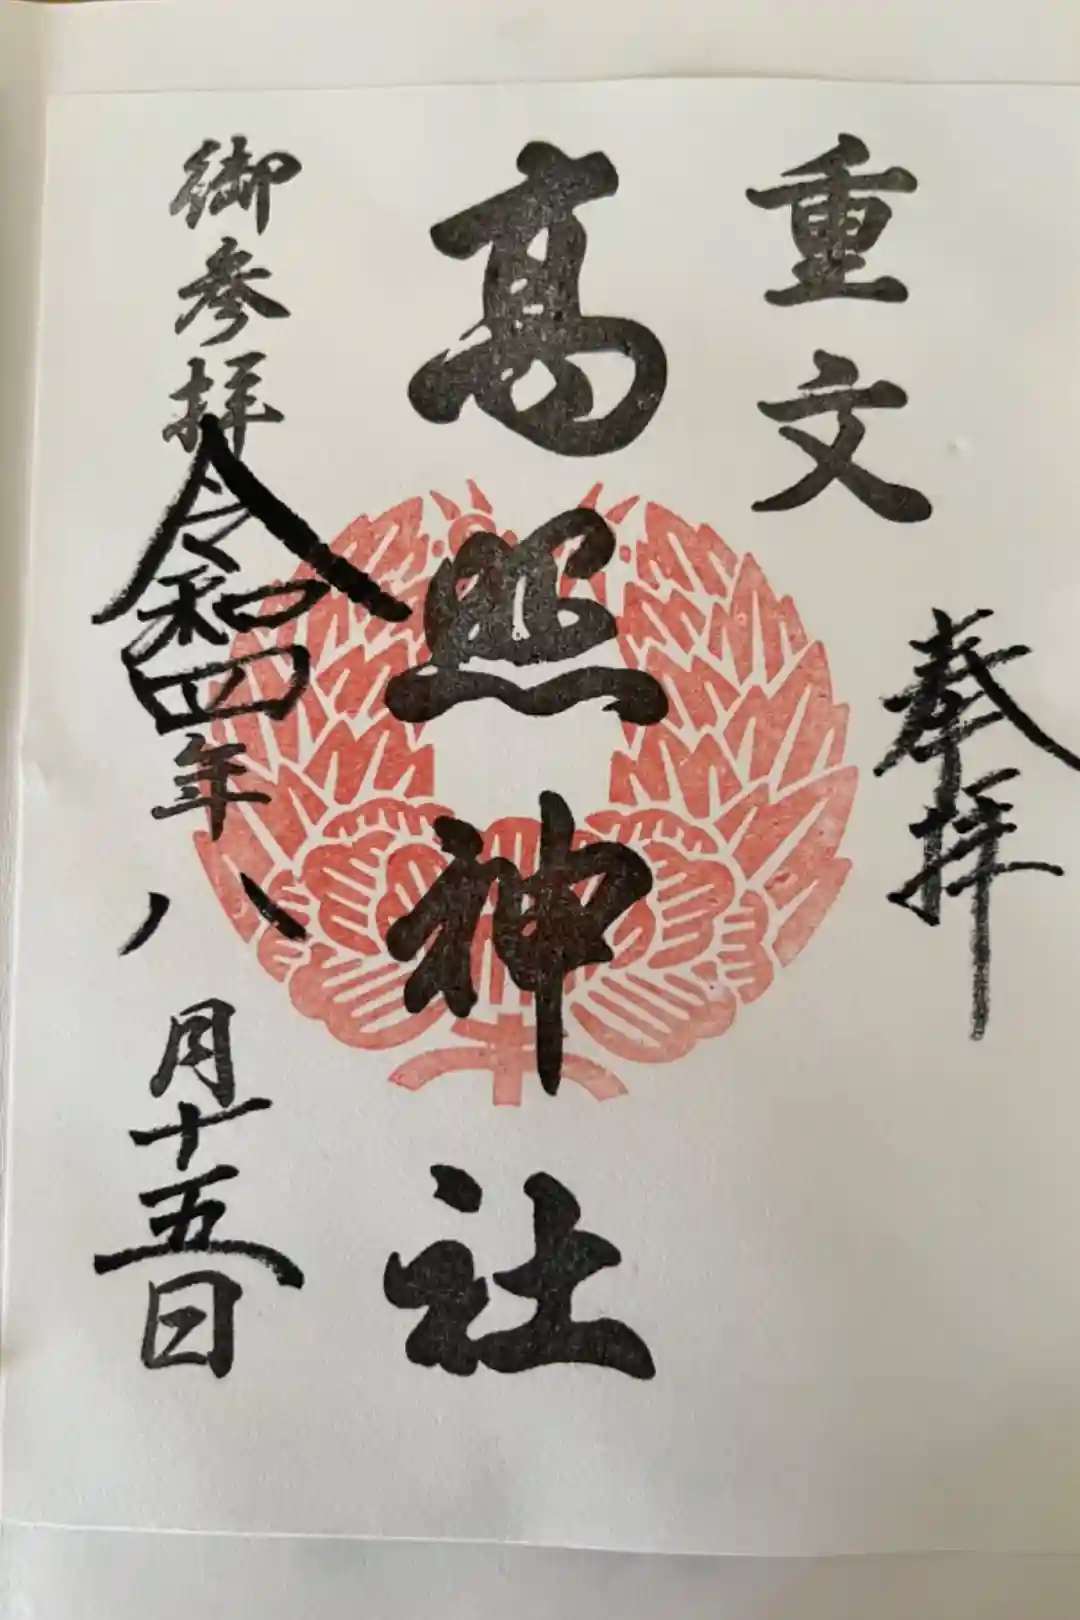 重文
奉拝
高照神社
御参拝
令和四年八月十五日